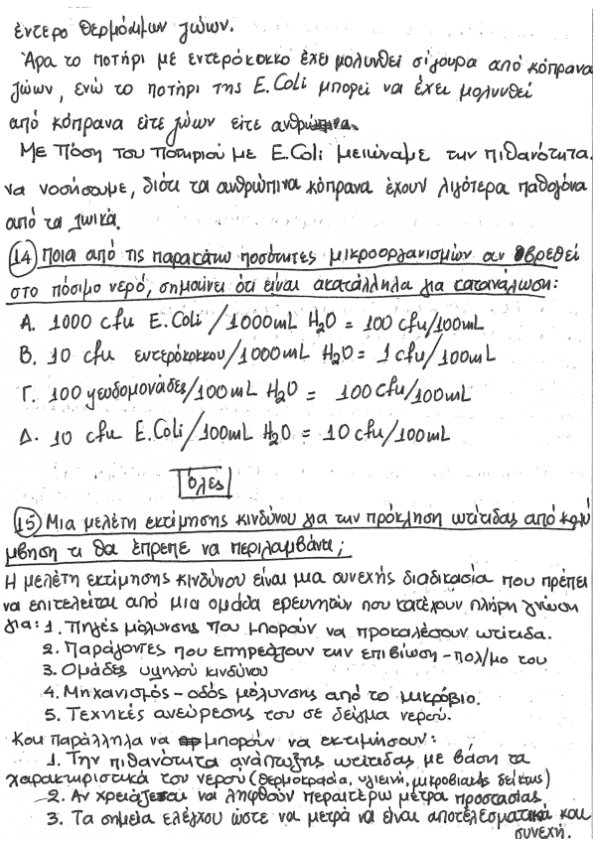 έντερο θερμόαιμων ζώων.
Άρα το ποτήρι με εντερόκοκκο έχει μολυνθεί σίγουρα από κόπρανα
ζώων, ενώ το ποτήρι της E.Coli μπορεί να έχει μολυνθεί
από κόπρανα είτε ζώων είτε ανθρώπινα.
Με πόση του ποτηριού με E.Coli μειώναμε την πιθανότητα
να νοσήσουμε, διότι τα ανθρώπινα κόπρανα έχουν λιγότερα παθογόνα
από τα ζωικά.
14 Ποια από τις παρακάτω ποσότητες μικροοργανισμών αν βρεθεί
στο πόσιμο νερό, σημαίνει ότι είναι ακατάλληλα για κατανάλωση:
Α. 1000 cfu E.Coli /1000mL H2O = 100 cfu/100mL
Β. 10 cfu εντερόκοκκου/1000mL H2O = 1 cfu/100mL
Γ. 100 ψευδομονάδες/100mL H2O = 100 cfu/100mL
Δ. 10 cfu E.Coli/100mL H2O = 10 cfu/100mL
όλες
15 Μια μελέτη εκτίμησης κινδύνου για την πρόκληση ωτίτιδας από κολύ
μβηση τι θα έπρεπε να περιλαμβάνει;
Η μελέτη εκτίμησης κινδύνου είναι μια συνεχής διαδικασία που πρέπει
να επιτελείται από μια ομάδα ερευνητών που κατέχουν πλήρη γνώση
για: 1. Πηγές μόλυνσης που μπορούν να προκαλέσουν ωτίτιδα.
2. Παράγοντες που επηρεάζουν την επιβίωση - πολ/μο του
3. Ομάδες υψηλού κινδύνου
4. Μηχανισμός - οδός μόλυνσης από το μικρόβιο.
5. Τεχνικές ανεύρεσης του σε δείγμα νερού.
Και παράλληλα να μπορούν να εκτιμήσουν:
1. Την πιθανότητα ανάπτυξης ωτίτιδας με βάση τα
χαρακτηριστικά του νερού (θερμοκρασία, υγιεινή, μικροβιακός δείκτης)
2. Αν χρειάζεται να ληφθούν περαιτέρω μέτρα προστασίας
3. Τα σημεία ελέγχου ώστε να μετρά να είναι αποτελεσματικά και
συνεχή.